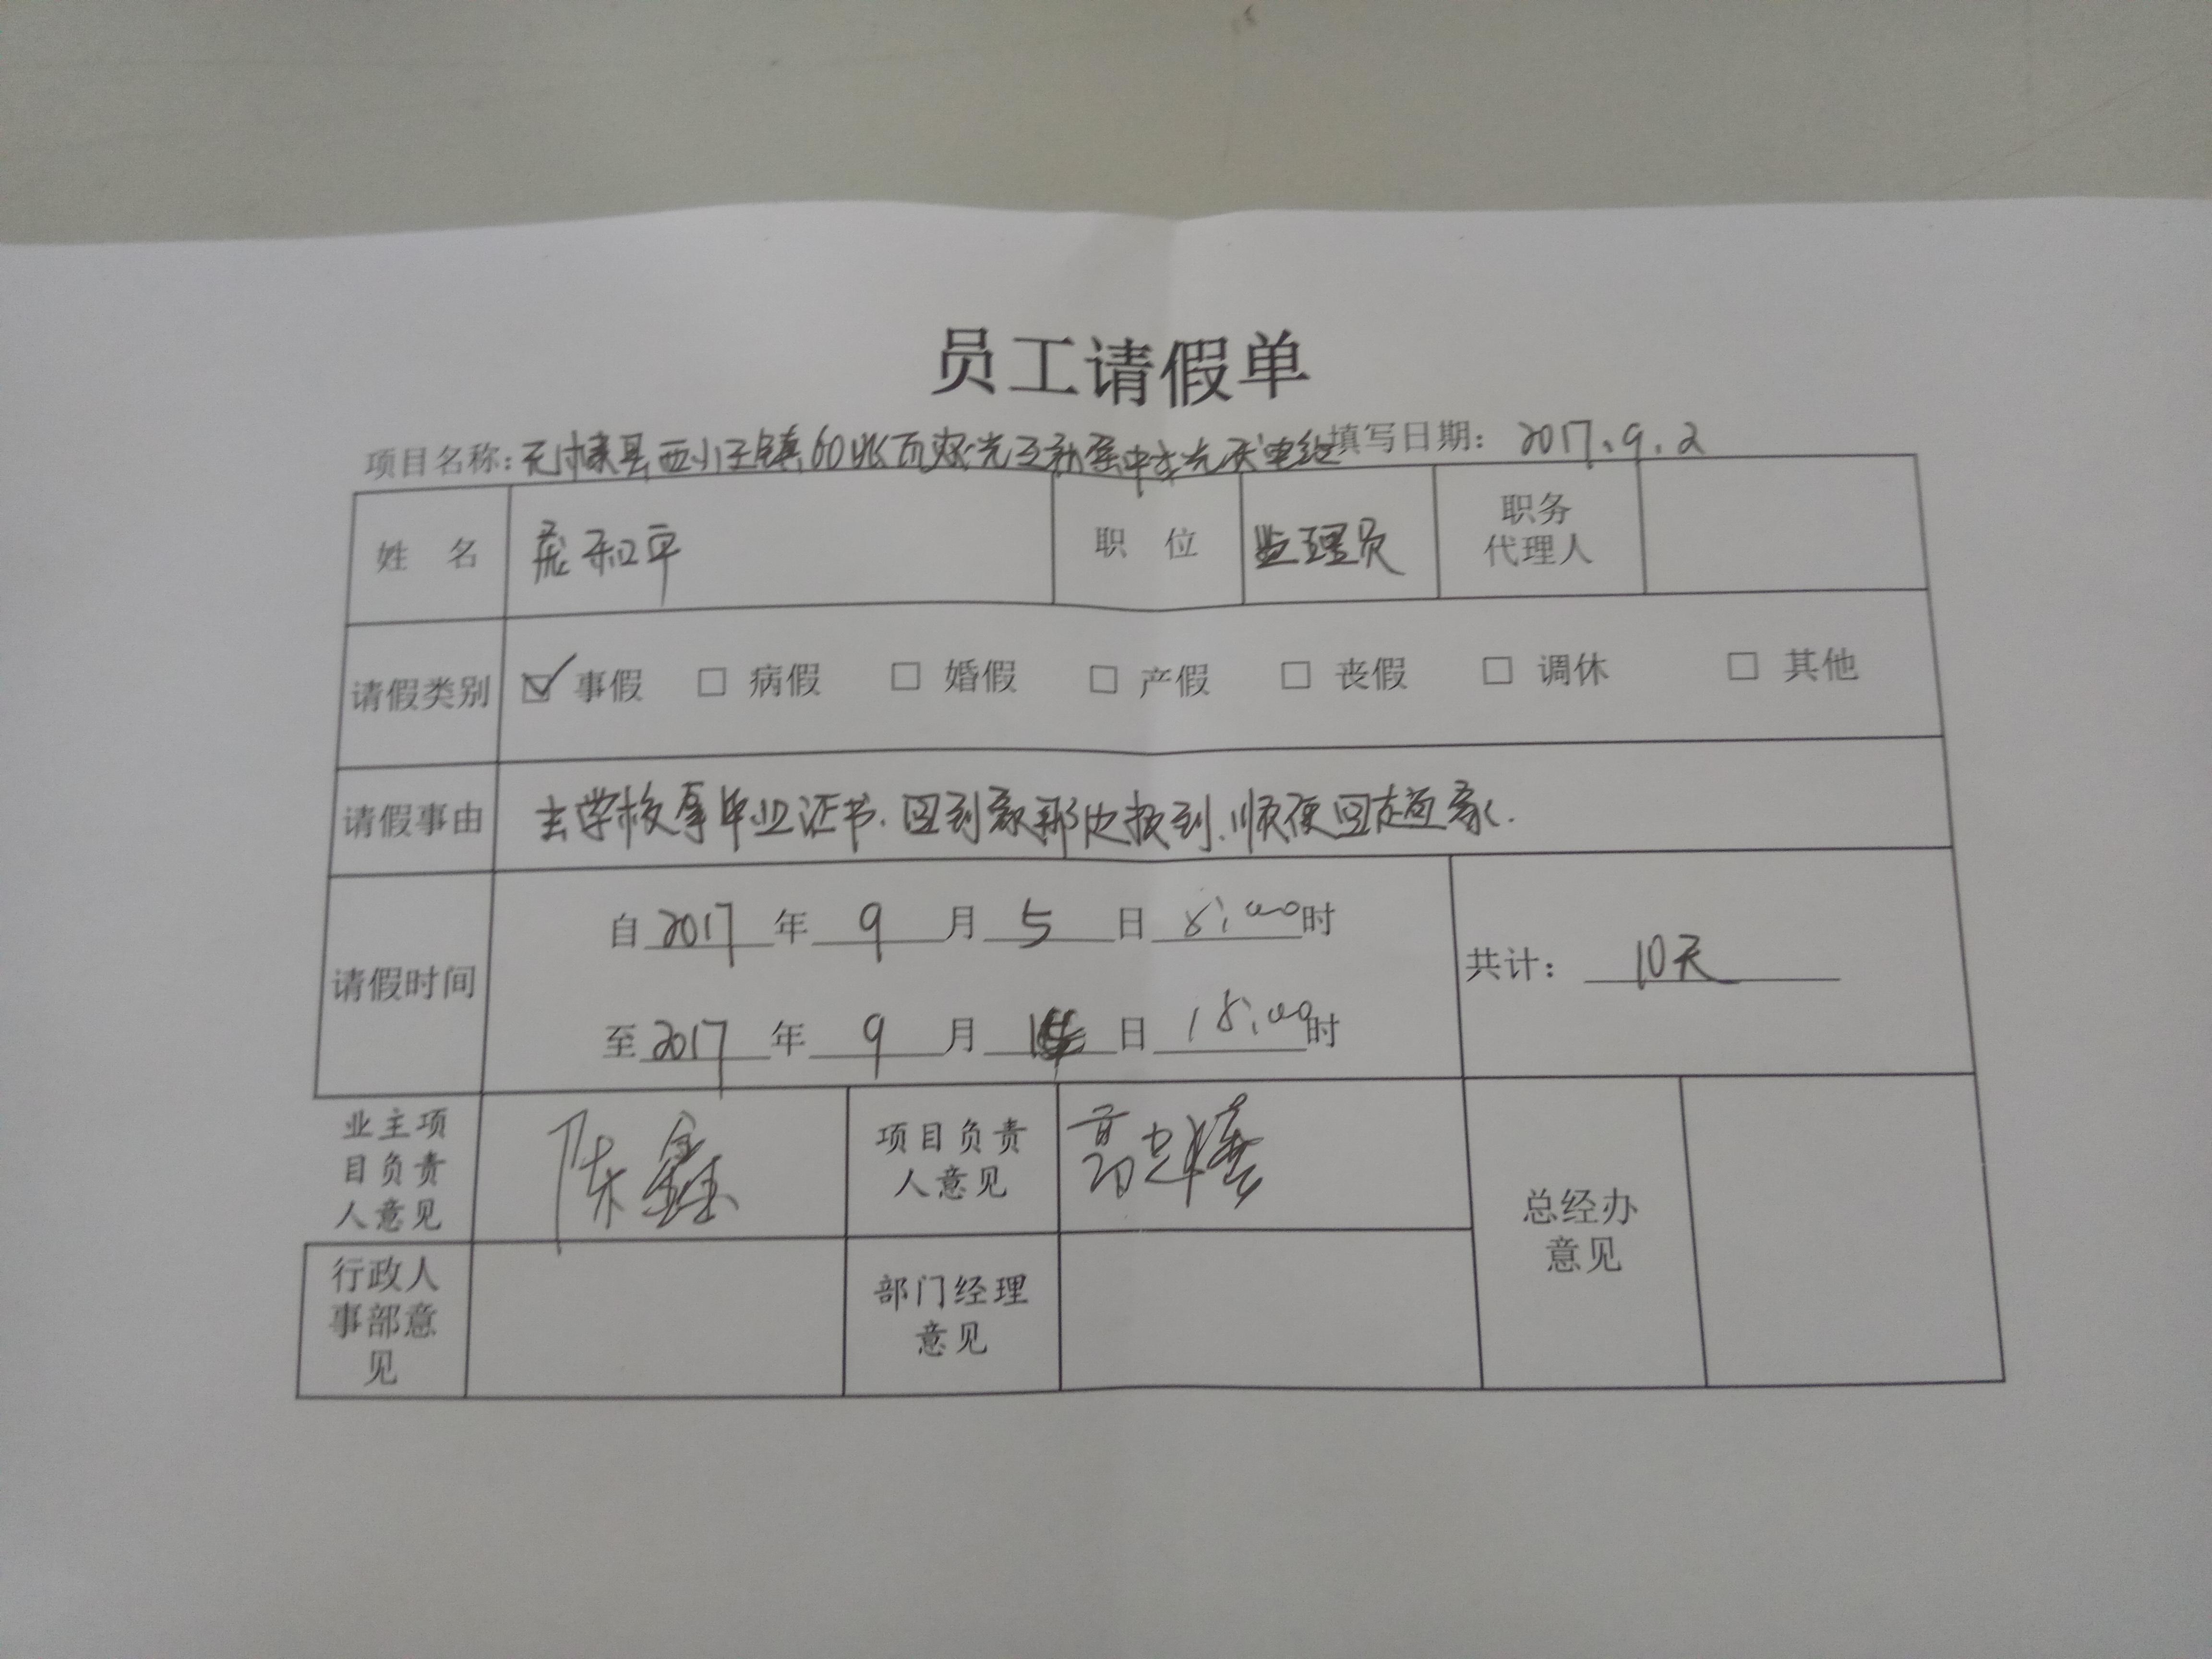 员工请假单
项目名称：无棣县西小王镇60兆瓦渔光互补集中式光伏电站 填写日期：2017.9.2
姓 名 庞和平 职 位 监理员 职务代理人
请假类别 ☑ 事假 □ 病假 □ 婚假 □ 产假 □ 丧假 □ 调休 □ 其他
请假事由 去学校拿毕业证书.回到家那边报到.顺便回趟家.
自 2017 年 9 月 5 日 8:00 时
请假时间 共计： 10天
至 2017 年 9 月 14 日 18:00 时
业主项目负责人意见 陈鑫 项目负责人意见 高
总经办意见
行政人事部意见 部门经理意见